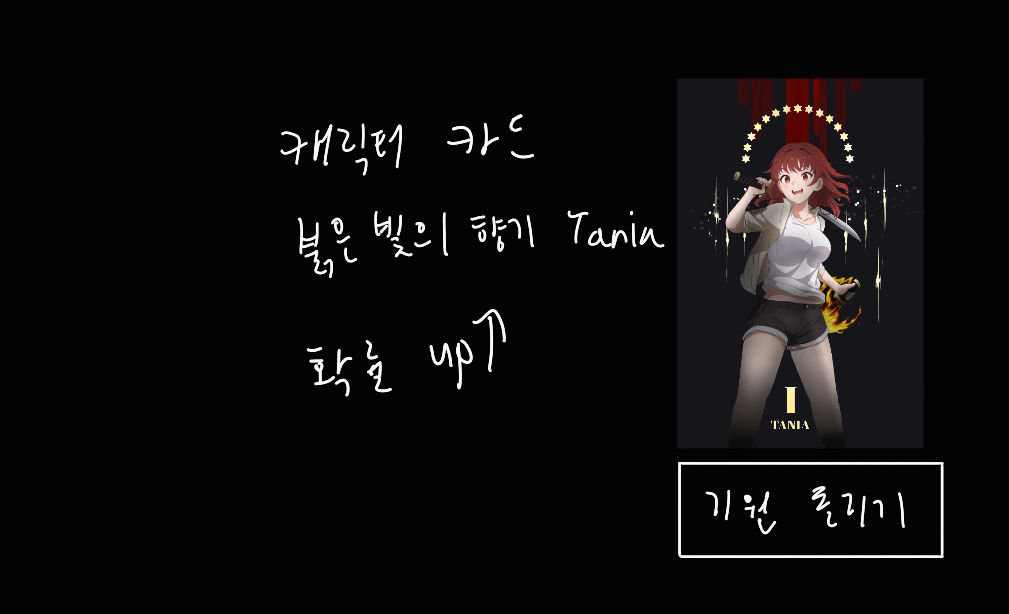 캐릭터 카드
붉은 빛의 향기 Tania
확률 up↑
I
TANIA
기원 돌리기